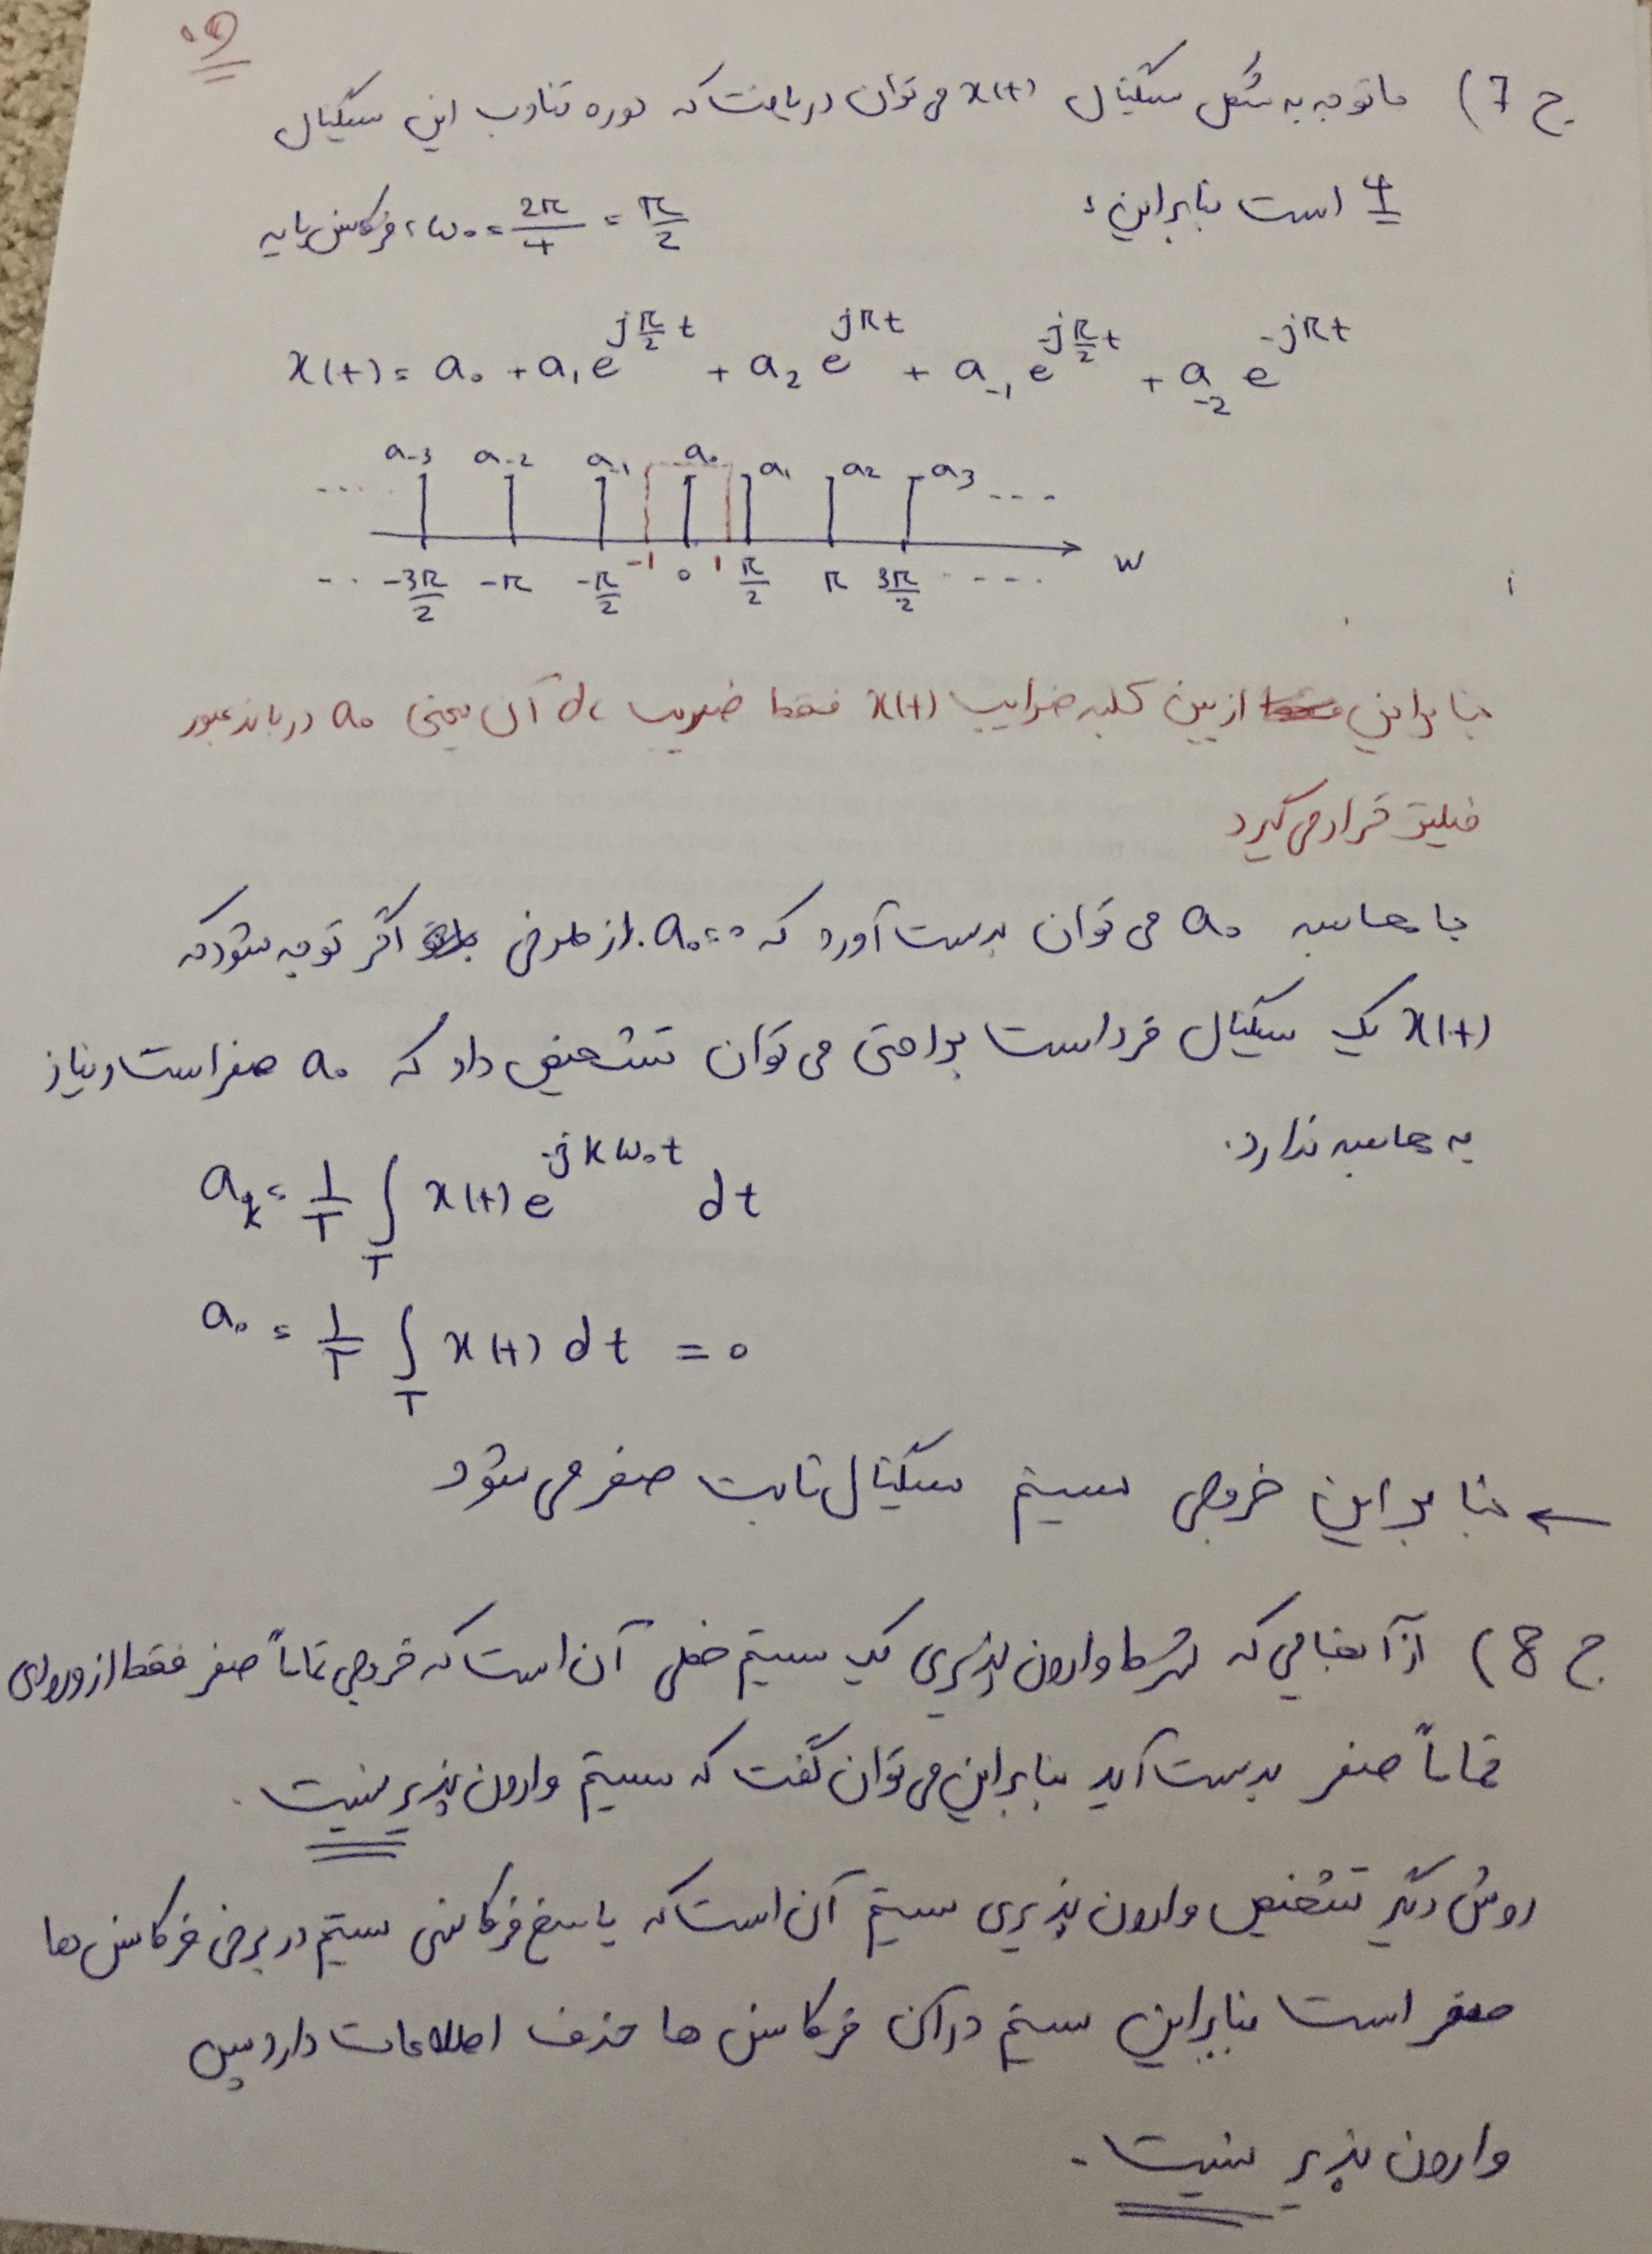 ۹.
ج 7) با توجه به شکل سیگنال x(t) می توان دریافت که دوره تناوب این سیگنال
4 است بنابراین: فرکانس پایه، ω₀ = 2π/4 = π/2
x(t) = a₀ + a₁ e^{jπ/2 t} + a₂ e^{jπt} + a₋₁ e^{-jπ/2 t} + a₋₂ e^{-jπt}
... a₋₃ a₋₂ a₋₁ a₀ a₁ a₂ a₃ ...
... -3π/2 -π -π/2 -1 0 1 π/2 π 3π/2 ... ω
بنابراین از بین کلیه ضرایب x(t) فقط ضریب dc آن یعنی a₀ در باند عبور
فیلتر قرار می گیرد
با محاسبه a₀ می توان بدست آورد که a₀=0. از طرفی اگر توجه شود که
x(t) یک سیگنال فرد است براحتی می توان تشخیص داد که a₀ صفر است و نیاز
به محاسبه ندارد.
aₖ = 1/T ∫_T x(t) e^{-jkω₀t} dt
a₀ = 1/T ∫_T x(t) dt = 0
← بنابراین خروجی سیستم سیگنال ثابت صفر می شود
ج 8) از آنجایی که شرط وارون پذیری یک سیستم خطی آن است که خروجی تماماً صفر فقط از ورودی
تماماً صفر بدست آید بنابراین می توان گفت که سیستم وارون پذیر نیست.
روش دیگر تشخیص وارون پذیری سیستم آن است که پاسخ فرکانسی سیستم در برخی فرکانس ها
صفر است بنابراین سیستم در آن فرکانس ها حذف اطلاعات دارد پس
وارون پذیر نیست.